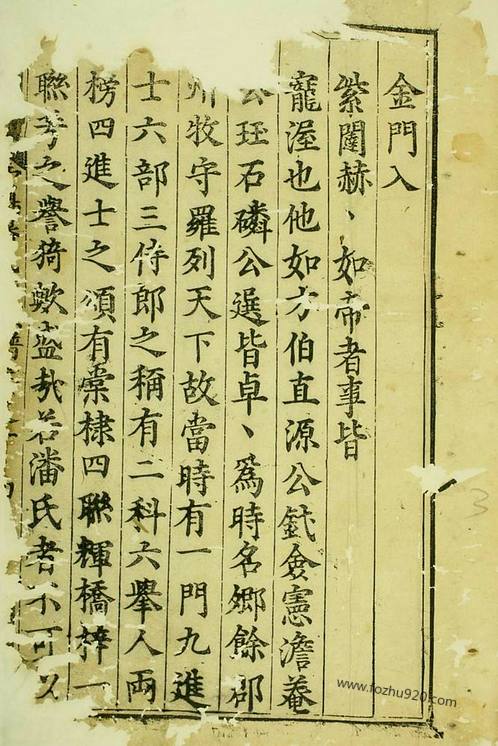 金門入
紫闥赫、如帝者事皆
寵渥也他如方伯直源公武僉憲澹菴
公珏石磷公選皆卓、爲時名鄉餘郡
州牧守羅列天下故當時有一門九進
士六部三侍郎之稱有二科六舉人兩
榜四進士之頌有棠棣四聯輝橋梓一
聯芳之譽猗歟盛哉若潘氏者不可以
www.fozhu920.com
3